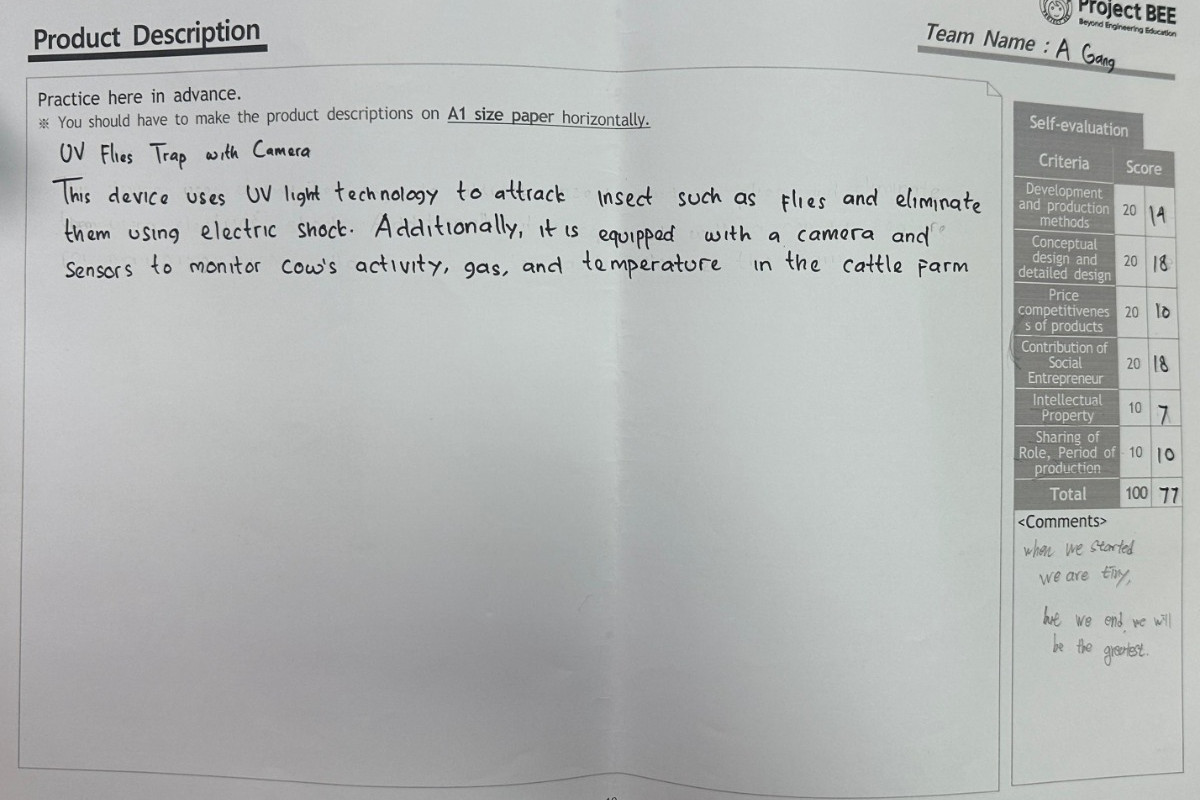 Product Description
Project BEE
Beyond Engineering Education
Team Name : A Gang
Practice here in advance.
※ You should have to make the product descriptions on A1 size paper horizontally.
UV Flies Trap with Camera
This device uses UV light technology to attrack insect such as flies and eliminate
them using electric shock. Additionally, it is equipped with a camera and
sensors to monitor cow's activity, gas, and temperature in the cattle farm
Self-evaluation
Criteria Score
Development
and production
methods
20 14
Conceptual
design and
detailed design
20 18
Price
competitivenes
s of products
20 10
Contribution of
Social
Entrepreneur
20 18
Intellectual
Property
10 7
Sharing of
Role, Period of
production
10 10
Total 100 77
<Comments>
when we started
we are tiny,
we end we will
be the greatest.